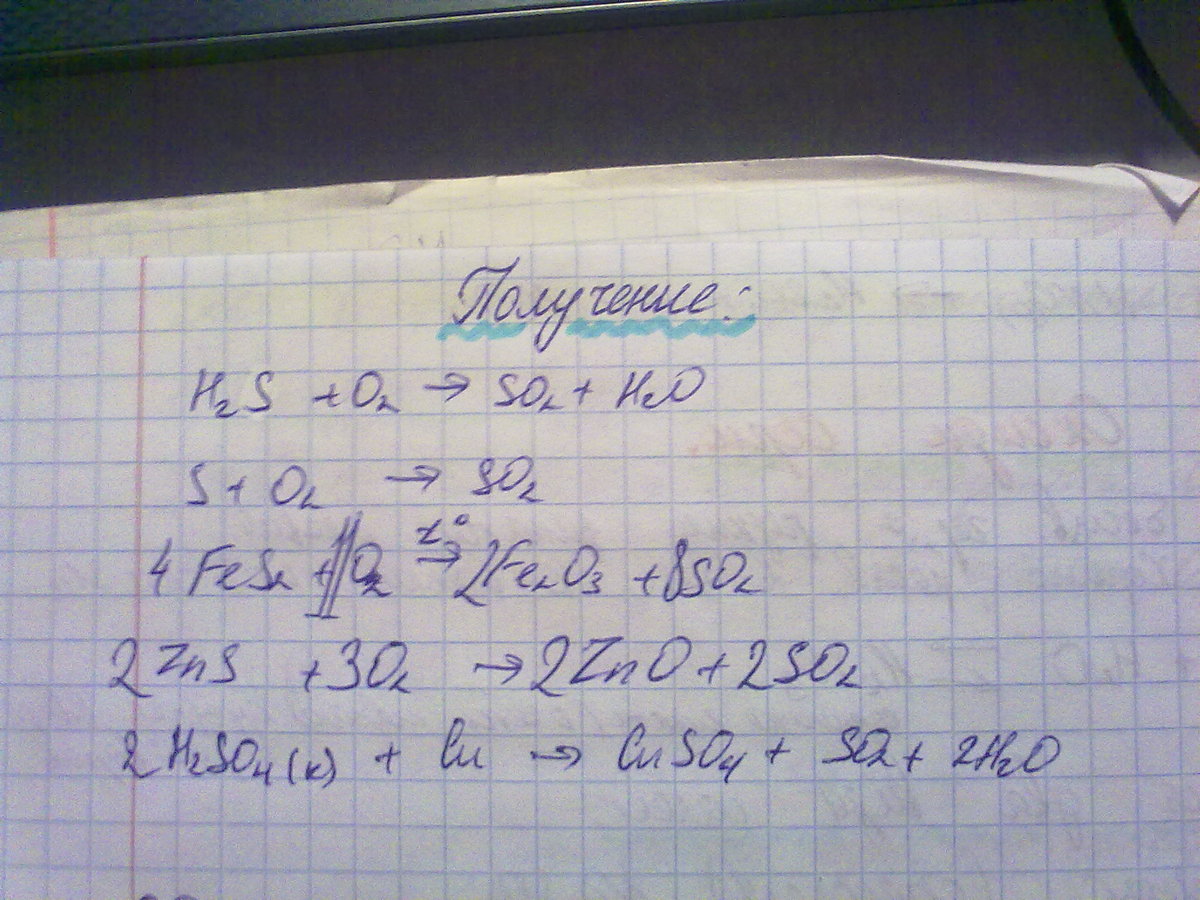 Получение:
H₂S + O₂ → SO₂ + H₂O
S + O₂ → SO₂
4 FeS₂ + 11 O₂ t° → 2Fe₂O₃ + 8SO₂
2 ZnS + 3O₂ → 2ZnO + 2SO₂
2 H₂SO₄ (к) + Cu → CuSO₄ + SO₂ + 2H₂O